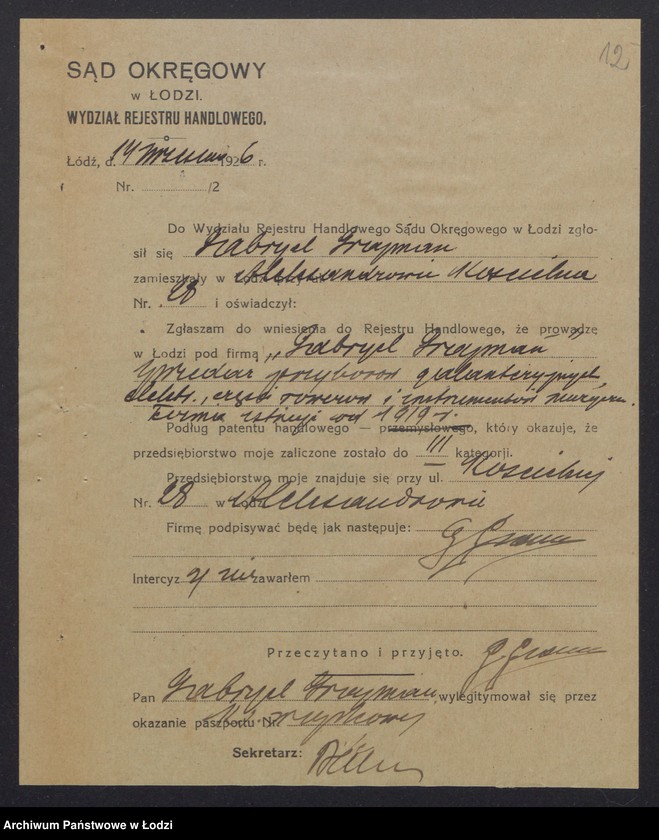 12
SĄD OKRĘGOWY
w ŁODZI.
WYDZIAŁ REJESTRU HANDLOWEGO.
Łódź, d. 14 Września 1926 r.
Nr. /2
Do Wydziału Rejestru Handlowego Sądu Okręgowego w Łodzi zgło-
sił się Gabryel Grajman
zamieszkały w Aleksandrowie Kościelna
Nr. 28 i oświadczył:
Zgłaszam do wniesienia do Rejestru Handlowego, że prowadzę
w Łodzi pod firmą „Gabryel Grajman"
sprzedaż przyborów galanteryjnych
elektr., części rowerow i instrumentów muzyczn.
Firma istnieje od 1919 r.
Podług patentu handlowego — przemysłowego, który okazuje, że
przedsiębiorstwo moje zaliczone zostało do III kategorji.
Przedsiębiorstwo moje znajduje się przy ul. Kościelnej
Nr. 28 w Aleksandrowie
Firmę podpisywać będę jak następuje:
Intercyzy nie zawarłem
Przeczytano i przyjęto.
Pan Gabryel Grajman wylegitymował się przez
okazanie paszportu Nr.
Sekretarz:
Archiwum Państwowe w Łodzi